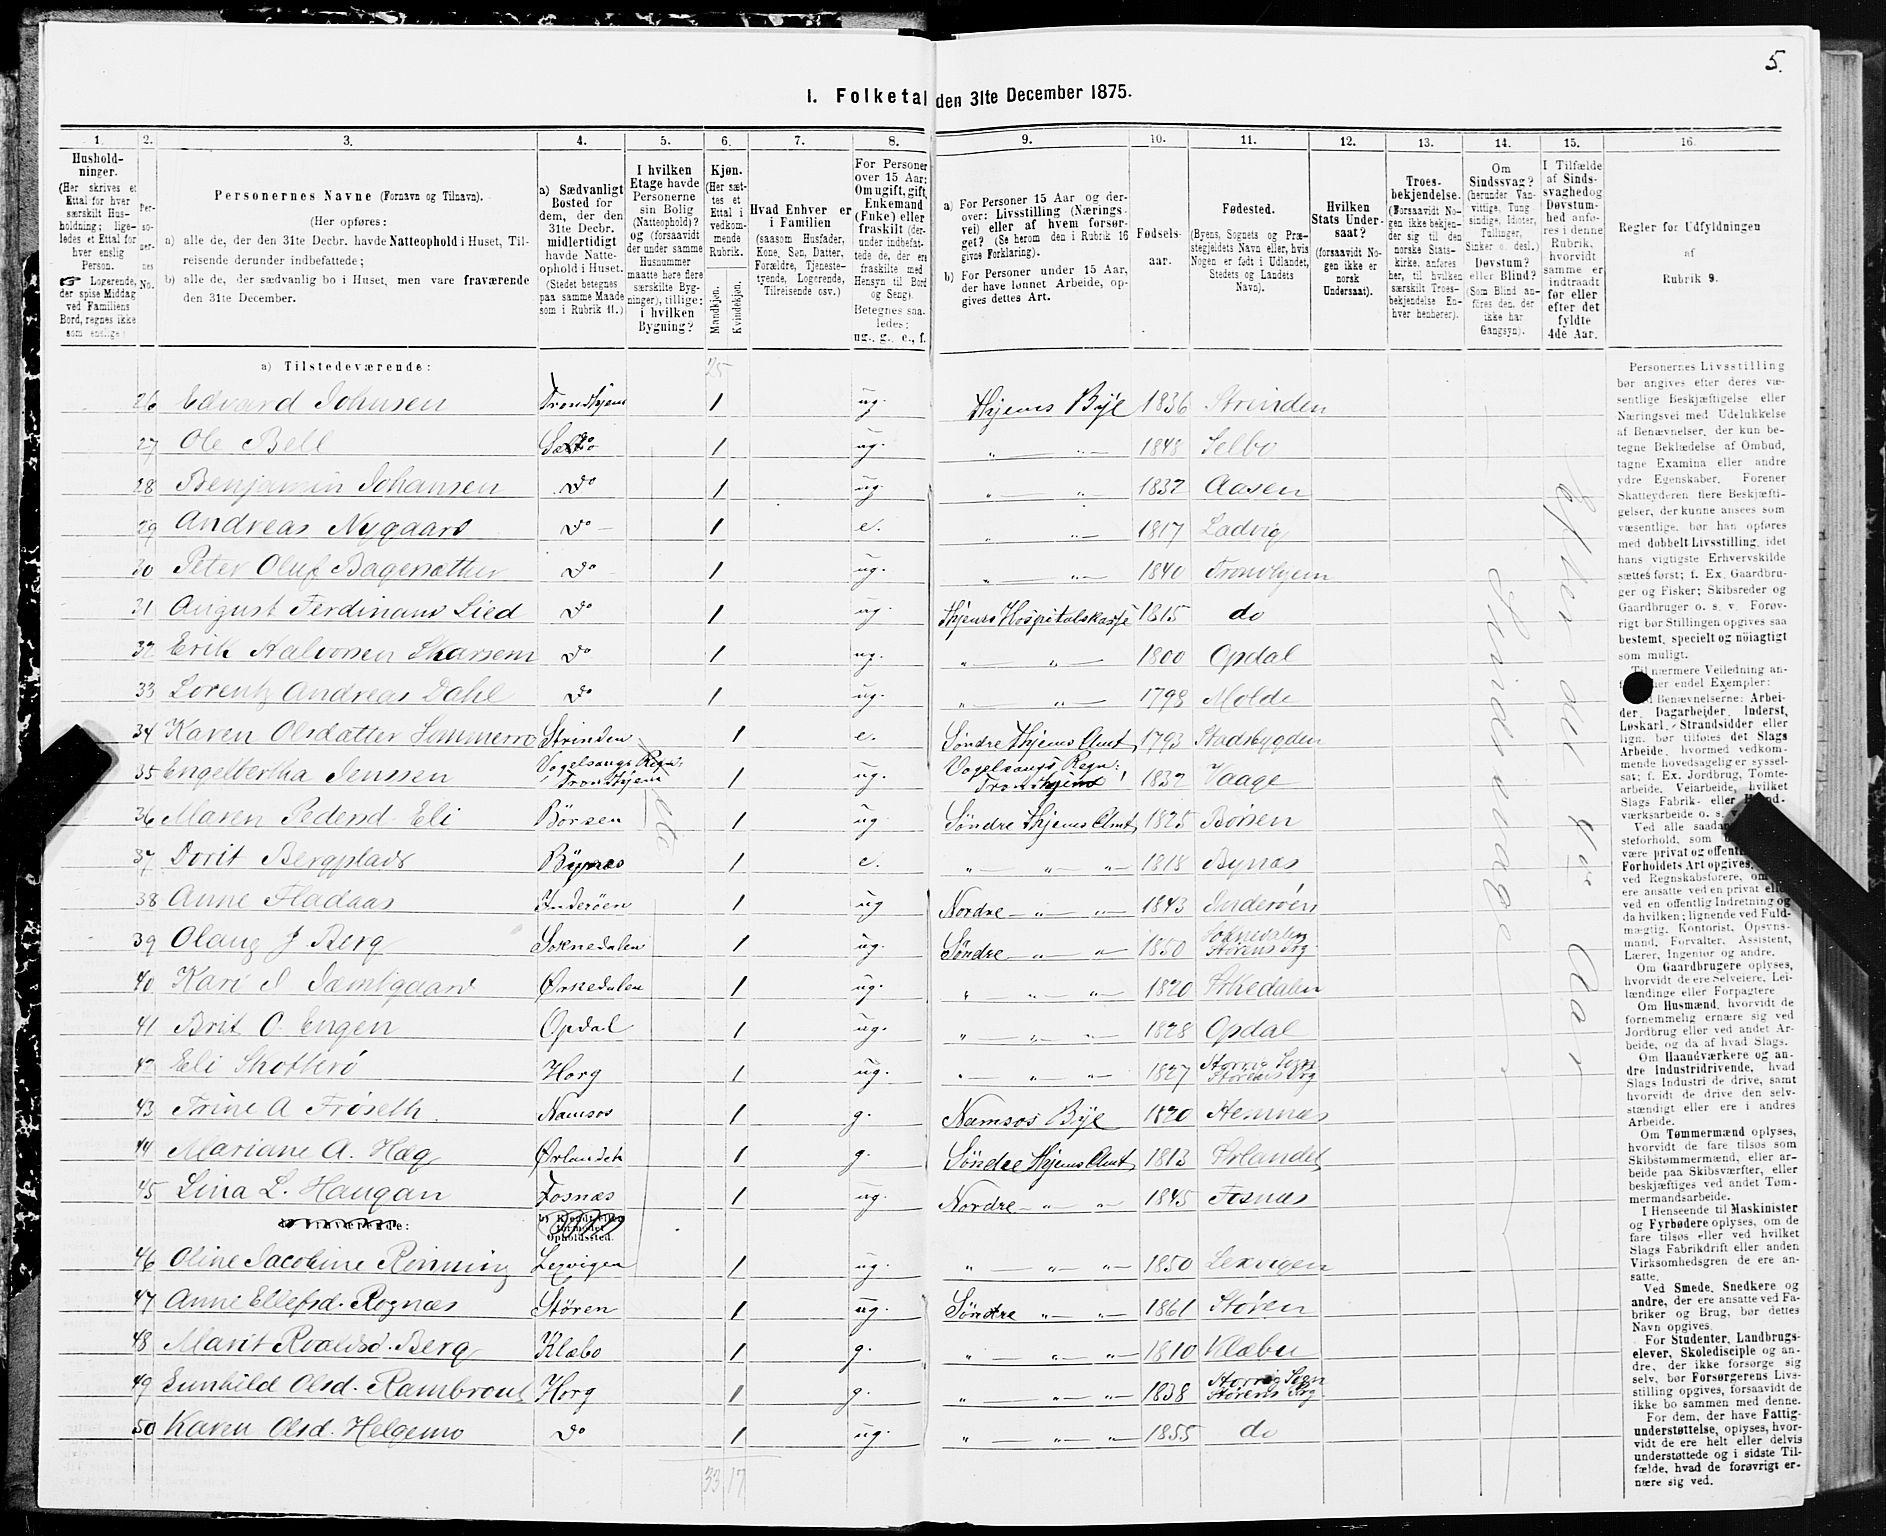 5.
I. Folketal den 31te December 1875.
1. 2. 3. 4. 5. 6. 7. 8. 9. 10. 11. 12. 13. 14. 15. 16.
Hushold-
ninger.
(Her skrives et
Ettal for hver
særskilt Hus-
holdning; lige-
ledes et Ettal for
hver enslig
Person.
☞ Logerende,
der spise Middag
ved Familiens
Bord, regnes ikke
som enslige)
Per-
so-
ner-
nes
No.
Personernes Navne (Fornavn og Tilnavn).
(Her opføres:
a) alle de, der den 31te Decbr. havde Natteophold i Huset, Til-
reisende derunder indbefattede;
b) alle de, der sædvanlig bo i Huset, men vare fraværende
den 31te December.
a) Sædvanligt
Bosted for
dem, der den
31te Decbr.
midlertidigt
havde Natte-
ophold i Huset.
(Stedet betegnes
paa samme Maade
som i Rubrik 11.)
I hvilken
Etage havde
Personerne
sin Bolig
(Natteophold)?
og (forsaavidt
der under samme
Husnummer
maatte høre flere
særskilte Byg-
ninger), tillige:
i hvilken
Bygning?
Kjøn.
(Her sæt-
tes et
Ettal i
vedkom-
mende
Rubrik.
Mandkjøn.
Kvindekjøn.
Hvad Enhver er
i Familien
(saasom Husfader,
Kone, Søn, Datter,
Forældre, Tjeneste-
tyende, Logerende,
Tilreisende osv.)
For Personer
over 15 Aar:
Om ugift, gift,
Enkemand
(Enke) eller
fraskilt (der-
under indbefat-
tede de, der ere
fraskilte med
Hensyn til Bord
og Seng).
Betegnes saa-
ledes:
ug., g., e., f.
a) For Personer 15 Aar og der-
over: Livsstilling (Nærings-
vei) eller af hvem forsør-
get? (Se herom den i Rubrik 16
givne Forklaring).
b) For Personer under 15 Aar,
der have lønnet Arbeide, op-
gives dettes Art.
Fødsels-
aar.
Fødested.
(Byens, Sognets og Præ-
stegjeldets Navn eller, hvis
Nogen er født i Udlandet,
Stedets og Landets
Navn).
Hvilken
Stats Under-
saat?
(forsaavidt No-
gen ikke er
norsk
Undersaat).
Troes-
bekjendelse.
(Forsaavidt No-
gen ikke bekjen-
der sig til den
norske Stats-
kirke, anføres
her, til hvilken
særskilt Troes-
bekjendelse En-
hver henhører).
Om
Sindssvag?
(herunder Van-
vittige, Tung-
sindige, Idioter,
Tullinger,
Sinker o. desl.)
Døvstum?
eller Blind?
(Som Blind an-
føres den, der
ikke har
Gangsyn).
I Tilfælde
af Sinds-
svaghed og
Døvstum-
hed anfø-
res i denne
Rubrik,
hvorvidt
samme er
indtraadt
før eller
efter det
fyldte
4de Aar.
Regler for Udfyldningen
af
Rubrik 9.
a) Tilstedeværende: 25
26 Edvard Johnsen Trondhjem 1 ug. Thjems Bye 1836 Strinden
27 Ole Bell do 1 ug. „ „ 1848 Selbo
28 Benjamin Johansen do 1 ug. „ „ 1832 Aasen
29 Andreas Nygaard do 1 e. „ „ 1817 Ladvig
30 Peter Oluf Bagesætter do 1 ug. „ „ 1840 Trondhjem
31 August Ferdinand Lied do 1 ug. Thjems Hospitalskasse 1815 do
32 Erik Halvorsen Skarsem do 1 ug. „ „ 1800 Opdal
33 Lorentz Andreas Dahl do 1 ug. „ „ 1798 Molde
34 Karen Olsdatter Simmerro Strinden 1 e. Søndre Thjems Amt 1793 Stadsbygden
35 Engelbertha Jenssen Vogelsangs Regn: Trondhjem 1 ug. Vogelsangs Regn: Trondhjem 1832 Vaage
36 Maren Pedersd. Eli Børsen 1 ug. Søndre Thjems Amt 1825 Børsen
37 Dorit Bergplads Bynæs 1 e. „ „ „ 1818 Bynæs
38 Anne Fladaas Inderøen 1 ug Nordre „ „ 1843 Inderøen
39 Olaug J Berg Soknedalen 1 ug. Søndre „ „ 1850 Soknedalen Størens Prg.
40 Kari J Jamtgaard Ørkedalen 1 ug. „ „ „ 1820 Ørkedalen
41 Brit O. Engen Opdal 1 ug. „ „ „ 1828 Opdal
42 Eli Skotterö Horg 1 ug. „ „ „ 1827 Horrig Sogn Størens Prg
43 Trine A Frøseth Namsos 1 g. Namsos Bye 1820 Hemnæs
44 Mariane A. Hag Ørlandet 1 g. Søndre Thjems Amt 1813 Ørlandet
45 Lina L. Haugan Fosnæs 1 ug. Nordre „ „ 1845 Fosnæs
46 Oline Jacobine Rønning Lexvigen 1 ug. „ „ „ 1850 Lexvigen
47 Anne Ellefsd. Rognæs Støren 1 ug. Søndre „ „ 1861 Støren
48 Marit Roaldsd. Berg Klæbo 1 g. „ „ „ 1810 Klæbu
49 Gunhild Olsd. Rambraut Horg 1 g. „ „ „ 1838 Horrig Sogn Størens Prg
50 Karen Olsd. Helgemo do 1 ug. „ „ „ 1855 do
33 17
Sindssvage
Efter det 4de Aar
Personernes Livsstilling
bør angives efter deres væ-
sentlige Beskjæftigelse eller
Næringsvei med Udelukkelse
af Benævnelser, der kun be-
tegne Beklædelse af Ombud,
tagne Examina eller andre
ydre Egenskaber. Forener
Skatteyderen flere Beskjæfti-
gelser, der kunne ansees som
væsentlige, bør han opføres
med dobbelt Livsstilling, idet
hans vigtigste Erhvervskilde
sættes først; f. Ex. Gaardbru-
ger og Fisker; Skibsreder og
Gaardbruger o. s. v. Forøv-
rigt bør Stillingen opgives saa
bestemt, specielt og nöiagtigt
som muligt.
Til nærmere Veiledning an-
endel Exempler:
Benævnelserne: Arbei-
der, Dagarbeider, Inderst,
Løskarl, Strandsidder eller
lign. bør tilføies det Slags
Arbeide, hvormed vedkom-
mende hovedsagelig er syssel-
sat; f. Ex. Jordbrug, Tomte-
arbeide, Veiarbeide, hvilket
Slags Fabrik- eller
værksarbeide o. s.
Ved alle
steforhold, som
være privat og
Forholdets Art opgives,
ved Regnskabsførere,
ere ansatte ved en privat
ved en offentlig Indretning og
da hvilken; lignende ved Fuld-
mægtig, Kontorist, Opsyns-
mand, Forvalter, Assistent,
Lærer, Ingeniør og andre.
Om Gaardbrugere oplyses,
hvorvidt de ere Selveiere, Lei-
lændinge eller Forpagtere
Om Husmænd, hvorvidt de
fornemmelig ernære sig ved
Jordbrug eller ved andet Ar-
beide, og da af hvad Slags.
Om Haandværkere og an-
dre Industridrivende, hvad
Slags Industri de drive, samt
hvorvidt de drive den selv-
stændigt eller ere i andres
Arbeide.
Om Tømmermænd oplyses,
hvorvidt de fare tilsøs som
Skibstømmermænd, eller ar-
beide paa Skibsværfter, eller
beskjæftiges ved andet Tøm-
mermandsarbeide.
I Henseende til Maskinister
og Fyrbødere oplyses, om de
fare tilsøs eller ved hvilket
Slags Fabrikdrift eller anden
Virksomhedsgren de ere an-
satte.
Ved Smede, Snedkere og
andre, der ere ansatte ved Fa-
briker og Brug, bør dettes
Navn opgives.
For Studenter, Landbrugs-
elever, Skoledisciple og an-
dre, der ikke forsørge sig
selv, bør Forsørgerens Livs-
stilling opgives, forsaavidt de
ikke bo sammen med denne.
For dem, der have Fattig-
understøttelse, oplyses, hvor-
vidt de ere helt eller delvis
understøttede og i sidste Til-
fælde, hvad de forøvrigt er-
nære sig ved.